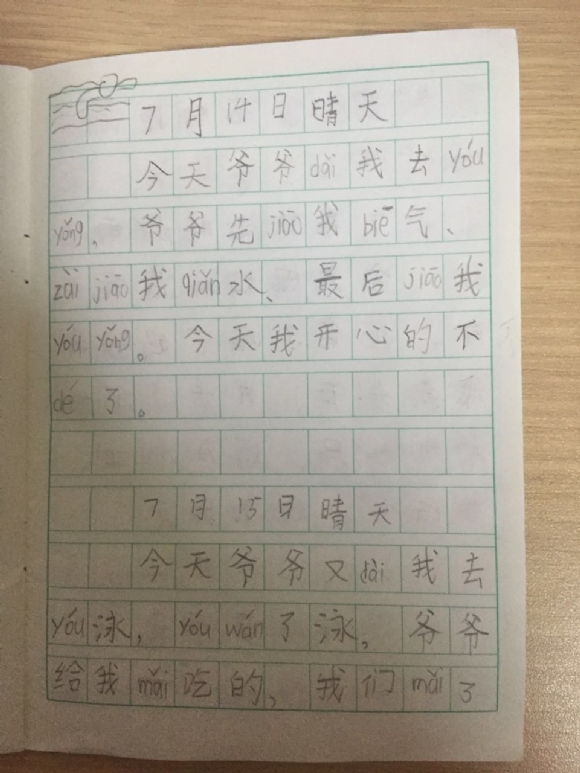 7月14日晴天
今天爷爷dài我去yóu
yǒng、爷爷先jiāo我biē气、
zài jiāo我qián水、最后jiāo我
yóu yǒng。今天我开心的不
dé了。
7月15日晴天
今天爷爷又dài我去
yóu泳，yóu wán了泳，爷爷
给我mǎi吃的、我们mǎi了